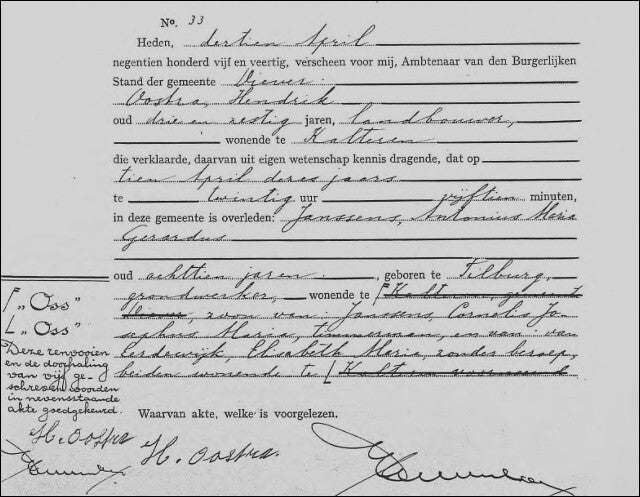 No. 33
Heden, dertien April
negentien honderd vijf en veertig, verscheen voor mij, Ambtenaar van den Burgerlijken
Stand der gemeente Diever:
Oostra, Hendrik
oud drie en zestig jaren, landbouwer,
wonende te Kalteren
die verklaarde, daarvan uit eigen wetenschap kennis dragende, dat op
tien April dezes jaars
te twintig uur vijftien minuten,
in deze gemeente is overleden: Janssens, Antonius Maria
Gerardus
oud achttien jaren, geboren te Tilburg,
grondwerker, wonende te ⌈Kalteren, gemeente
Diever, zoon van: Janssens, Cornelis Jo-
sephus Maria, timmerman, en van: van
Eerdewijk, Elisabeth Maria, zonder beroep,
beiden wonende te ⌊Kalteren voornoemd
⌈ „Oss”
⌊ „Oss”
Deze renvooien
en de doorhaling
van vijf ge-
schreven woorden
in nevenstaande
akte goedgekeurd.
H. Oostra
Waarvan akte, welke is voorgelezen.
H. Oostra.